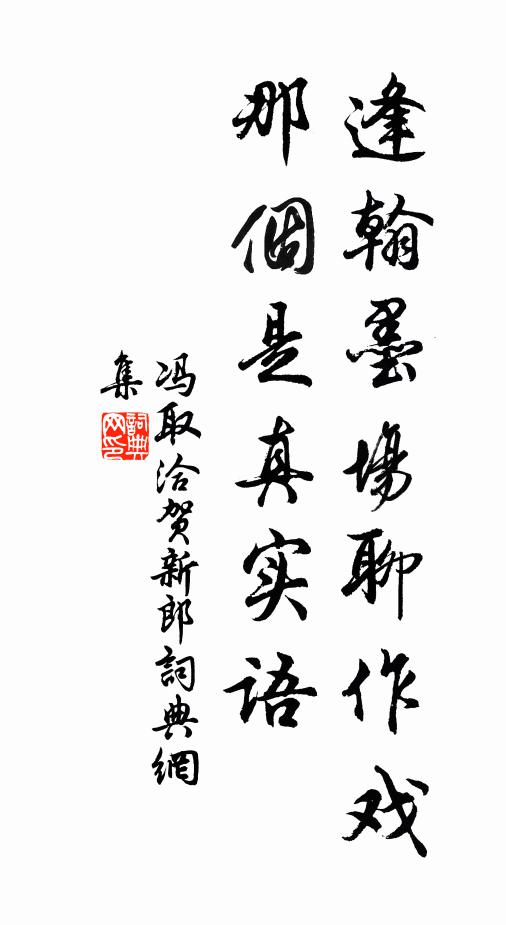 逢翰墨場聊作戏
那個是真实语
冯取洽贺新郎詞典網
集
詞典网印